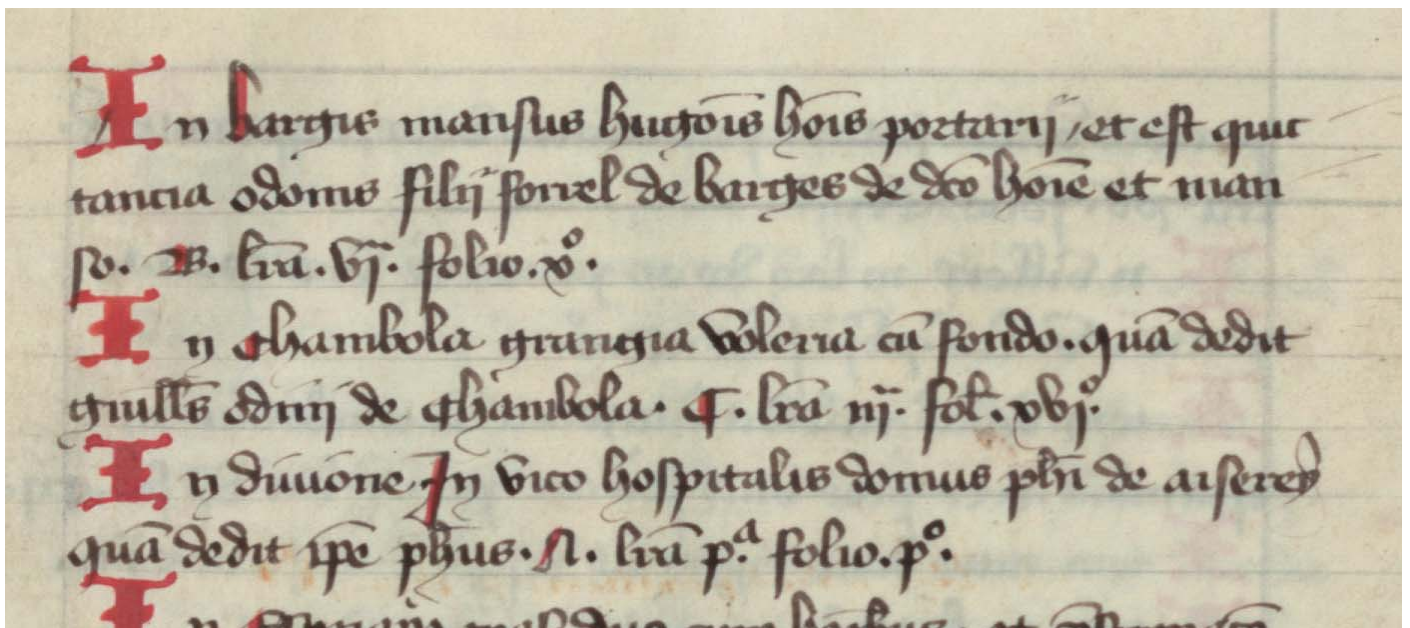 In bargis mansus hugoīs hoīs portarij / et est quit
tancia odonis filij sorrel de barges de dc̄o hoīe et man
so. B. lr̄a. vj. folio. xº.
In Chambola grangia voleria cū fondo. quā dedit
guill̄s odinj de Chambola. C. lr̄a iij. fol̄. xvjº.
In diuione In vico hospitalis domus ph̄i de aiserey
quā dedit ip̄e ph̄us. A. lr̄a pª. folio. pº.